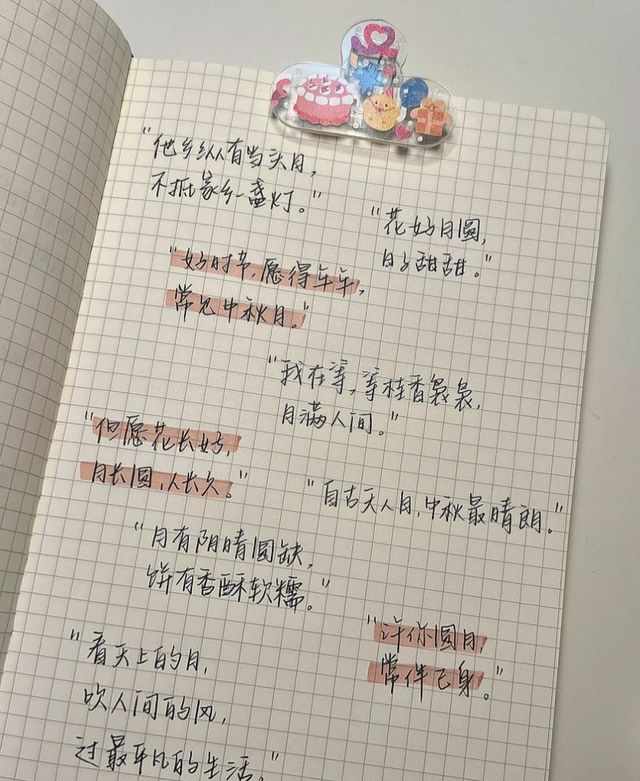 "他乡纵有当头月,
不抵家乡一盏灯。"
"花好月圆,
日子甜甜。"
"好时节,愿得年年,
常见中秋月。"
"我在等,等桂香袅袅,
月满人间。"
"但愿花长好,
月长圆,人长久。"
"自古天人月,中秋最晴朗。"
"月有阴晴圆缺,
饼有香酥软糯。"
"许你圆月,
常伴己身。"
"看天上的月,
吹人间的风,
过最平凡的生活。"